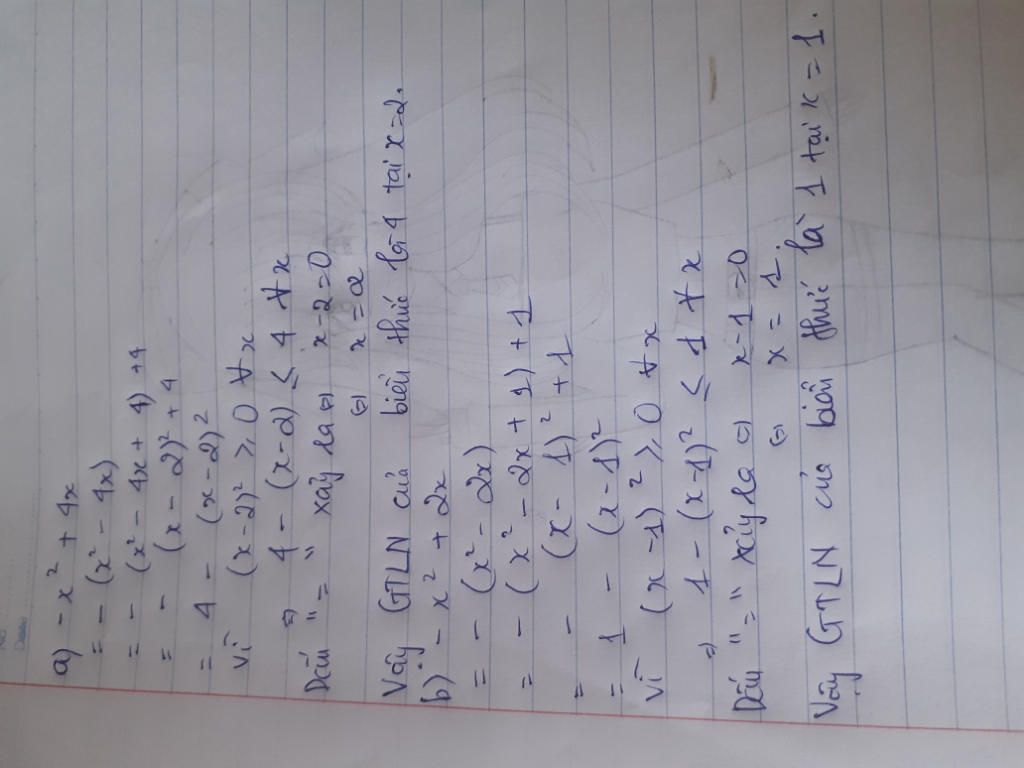 a) - x² + 4x
= - (x² - 4x)
= - (x² - 4x + 4) + 4
= - (x - 2)² + 4
= 4 - (x - 2)²
Vì (x - 2)² ≥ 0 ∀ x
⇒ 4 - (x - 2) ≤ 4 ∀ x
Dấu "=" xảy ra ⇔ x - 2 = 0
⇔ x = 2
Vậy GTLN của biểu thức là 4 tại x = 2.
b) - x² + 2x
= - (x² - 2x)
= - (x² - 2x + 1) + 1
= - (x - 1)² + 1
= 1 - (x - 1)²
Vì (x - 1)² ≥ 0 ∀ x
⇒ 1 - (x - 1)² ≤ 1 ∀ x
Dấu "=" xảy ra ⇔ x - 1 = 0
⇔ x = 1.
Vậy GTLN của biểu thức là 1 tại x = 1.